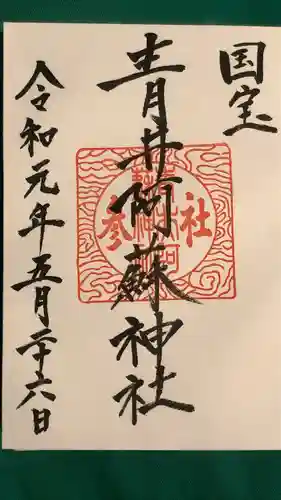 国宝
青井阿蘇神社
参社
令和元年五月二十六日